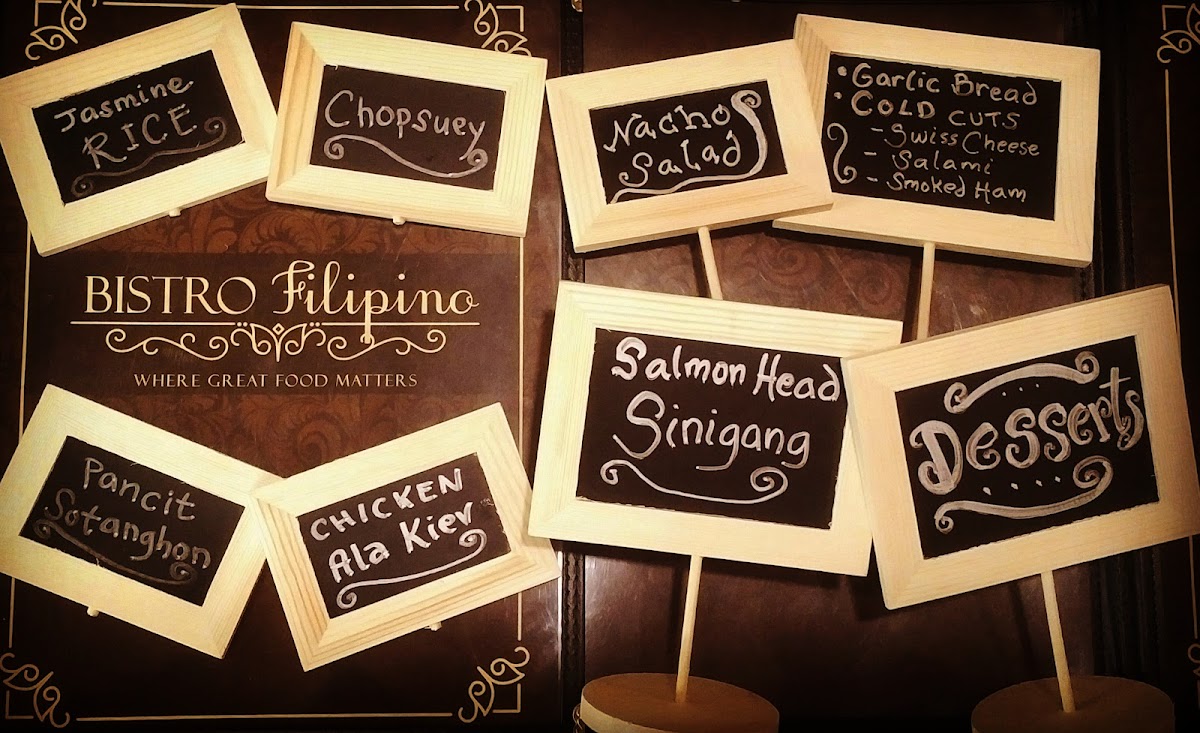 Jasmine
RICE
Chopsuey
Nacho
Salad
• Garlic Bread
• COLD CUTS
- Swiss Cheese
- Salami
- Smoked Ham
BISTRO Filipino
WHERE GREAT FOOD MATTERS
Pancit
Sotanghon
CHICKEN
Ala Kiev
Salmon Head
Sinigang
Desserts